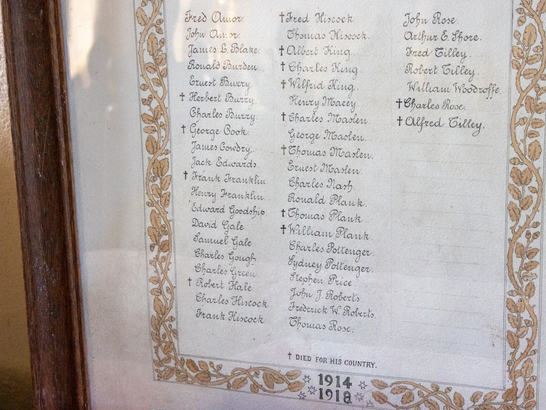 Fred Amor
John Amor
James L. Blake
Ronald Burden
Ernest Burry
† Herbert Burry
Charles Burry
† George Cook
James Cowdry
Jack Edwards
† Frank Franklin
Henry Franklin
Edward Goodship
David Gale
Samuel Gale
Charles Gough
Charles Green
† Robert Hale
Charles Hiscock
Frank Hiscock
† Fred Hiscock
Thomas Hiscock
† Albert King
† Charles King
† Wilfrid King
Henry Macey
† Charles Maslen
George Maslen
† Thomas Maslen
Ernest Maslen
Charles Nash
Ronald Plank
† Thomas Plank
† William Plank
Charles Pottenger
Sydney Pottenger
Stephen Price
John J. Roberts
Frederick W. Roberts
Thomas Rose
John Rose
Arthur E. Shore
Fred Tilley
Robert Tilley
William Woodroffe
† Charles Rose
† Alfred Tilley
† DIED FOR HIS COUNTRY.
1914
1918